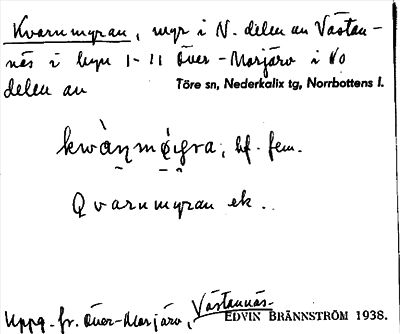 Kvarnmyran, myr i N. delen av Västan-
näs i byn 1-11 Över-Morjärv i NO
delen av Töre sn, Nederkalix tg, Norrbottens l.
kwàṇmǿ̜gra, bf. fem.
Qvarnmyran ek..
Uppg. fr. Över-Morjärv, Västannäs.
EDVIN BRÄNNSTRÖM 1938.